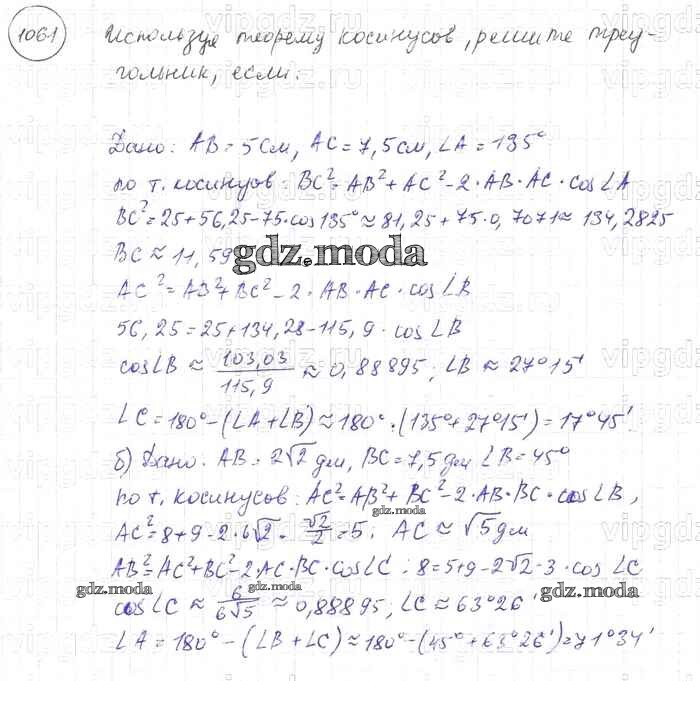 1061 Используя теорему косинусов, решите треу-
гольник, если:
Дано: AB = 5см, AC = 7,5см, ∠A = 135°
по т. косинусов: BC² = AB² + AC² - 2 · AB · AC · cos∠A
BC² = 25 + 56,25 - 75 · cos135° ≈ 81,25 + 75 · 0,7071 ≈ 134,2825
BC ≈ 11,59
gdz.moda
AC² = AB² + BC² - 2 · AB · AC · cos∠B
56,25 = 25 + 134,28 - 115,9 · cos∠B
cos∠B ≈ 103,03/115,9 ≈ 0,88895; ∠B ≈ 27°15'
∠C = 180° - (∠A + ∠B) ≈ 180° · (135° + 27°15') = 17°45'
б) Дано: AB = 2√2 дм, BC = 7,5дм ∠B = 45°
по т. косинусов: AC² = AB² + BC² - 2 · AB · BC · cos∠B,
gdz.moda
AC² = 8 + 9 - 2 · 6√2 · √2/2 = 5; AC ≈ √5 дм
AB² = AC² + BC² - 2 · AC · BC · cos∠C; 8 = 5 + 9 - 2√2 · 3 · cos∠C
gdz.moda
gdz.moda
cos∠C ≈ 6/6√5 ≈ 0,88895, ∠C ≈ 63°26'
∠A = 180° - (∠B + ∠C) ≈ 180° - (45° + 63°26') = 71°34'